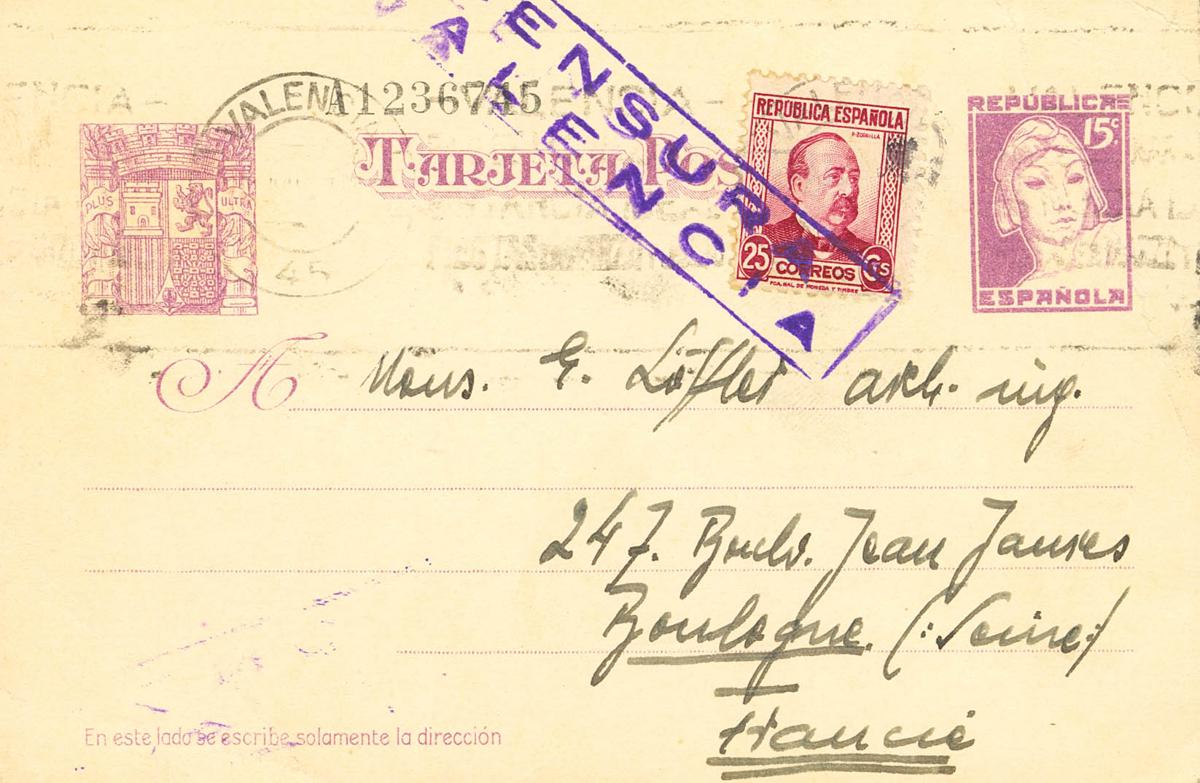 CENSURA
VALENCIA
VALENCIA
A1236745
TARJETA POS
REPÚBLICA ESPAÑOLA
R. ZORRILLA
25 CTS
CORREOS
FCA. NAL. DE MONEDA Y TIMBRE
REPÚBLICA
15c.
ESPAÑOLA
PLUS ULTRA
45
A Mons. E. Löffler arch. ing.
247. Boulv. Jean Jaures
Boulogne (:Seine:)
France
En este lado se escribe solamente la dirección